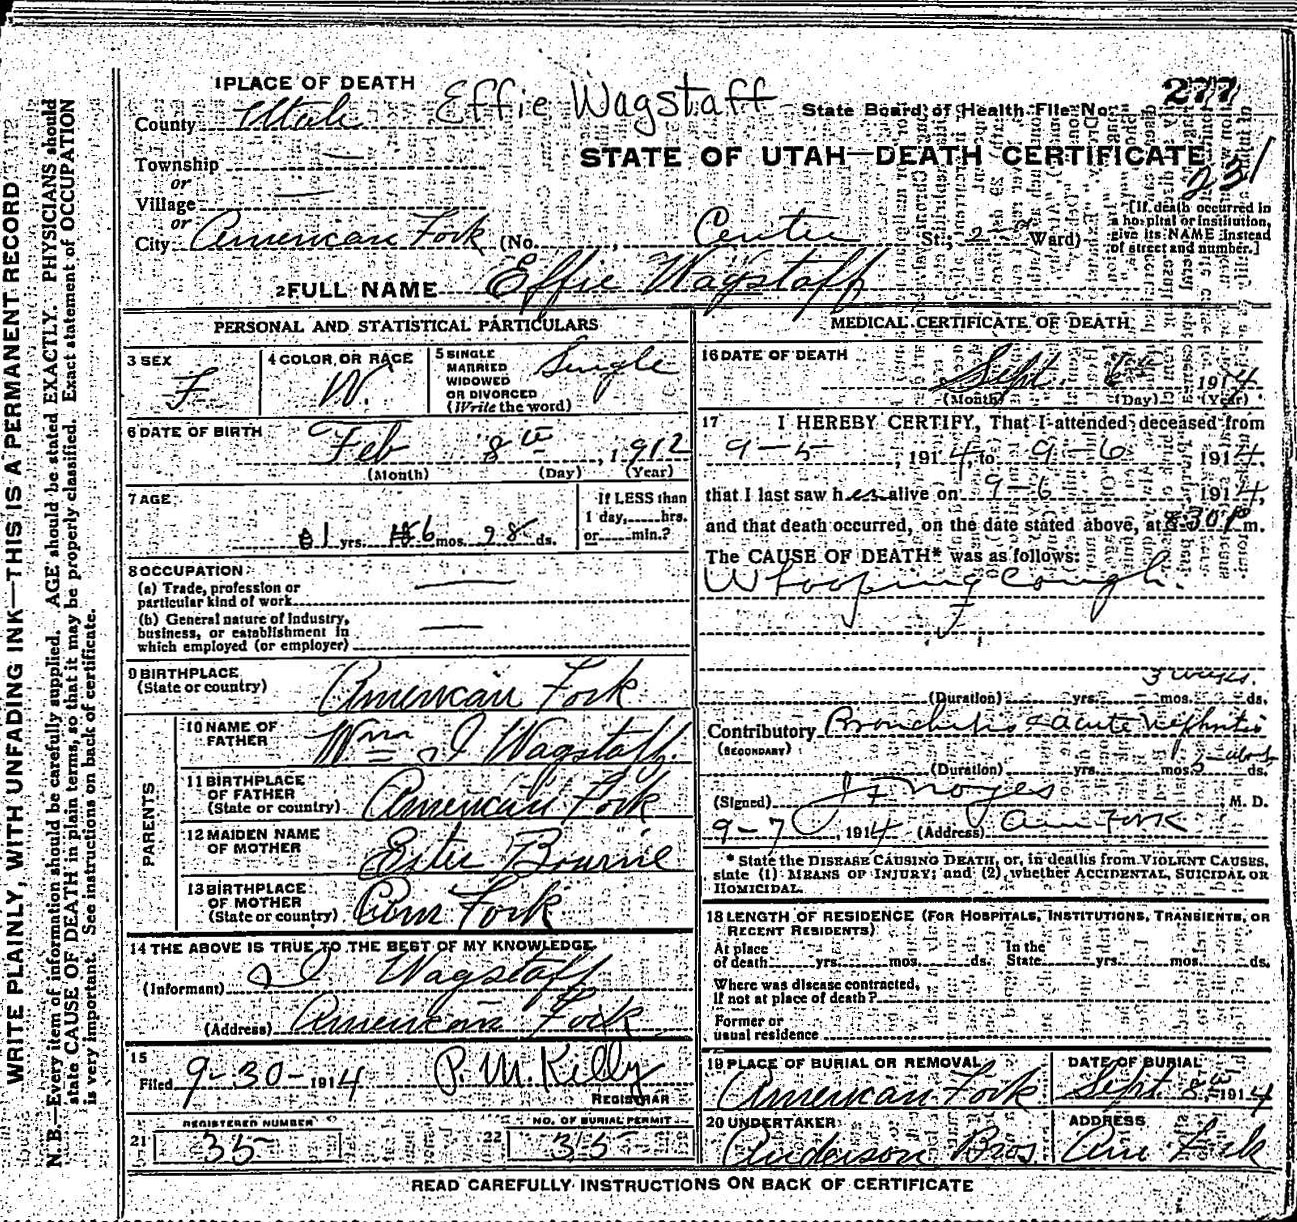 1 PLACE OF DEATH
Effie Wagstaff
State Board of Health File No. 277
County Utah
STATE OF UTAH—DEATH CERTIFICATE
231
Township —
or
Village —
or
City American Fork (No. , Center St.; 2 Ward)
[If death occurred in
a hospital or institution,
give its NAME instead
of street and number.]
2 FULL NAME Effie Wagstaff
PERSONAL AND STATISTICAL PARTICULARS
3 SEX
F
4 COLOR OR RACE
W.
5 SINGLE
MARRIED
WIDOWED
OR DIVORCED
(Write the word)
Single
6 DATE OF BIRTH
Feb 8th, 1912
(Month) (Day) (Year)
7 AGE
1 yrs. 6 mos. 28 ds.
If LESS than
1 day, hrs.
or min.?
8 OCCUPATION
(a) Trade, profession or
particular kind of work —
(b) General nature of Industry,
business, or establishment in
which employed (or employer) —
9 BIRTHPLACE
(State or country)
American Fork
PARENTS
10 NAME OF
FATHER
Wm I Wagstaff
11 BIRTHPLACE
OF FATHER
(State or country)
American Fork
12 MAIDEN NAME
OF MOTHER
Ester Bourne
13 BIRTHPLACE
OF MOTHER
(State or country)
Am Fork
14 THE ABOVE IS TRUE TO THE BEST OF MY KNOWLEDGE.
(Informant) I Wagstaff
(Address) American Fork
15
Filed 9-30-1914 P. M. Kelly
REGISTRAR
REGISTERED NUMBER
21 35
NO. OF BURIAL PERMIT
22 35
MEDICAL CERTIFICATE OF DEATH
16 DATE OF DEATH
Sept. 6th 1914
(Month) (Day) (Year)
17 I HEREBY CERTIFY, That I attended deceased from
9-5, 1914, to 9-6 1914,
that I last saw her alive on 9-6 1914,
and that death occurred, on the date stated above, at 8:30 P m.
The CAUSE OF DEATH* was as follows:
Whooping Cough.
3 weeks.
(Duration) yrs. mos. ds.
Contributory Bronchitis & acute Nephritis
(SECONDARY)
(Duration) yrs. mos. 5 ds.
(Signed) Noyes M. D.
9-7, 1914 (Address) Am Fork
* State the DISEASE CAUSING DEATH, or, in deaths from VIOLENT CAUSES,
state (1) MEANS OF INJURY; and (2) whether ACCIDENTAL, SUICIDAL OR
HOMICIDAL.
18 LENGTH OF RESIDENCE (FOR HOSPITALS, INSTITUTIONS, TRANSIENTS, OR
RECENT RESIDENTS)
At place
of death yrs. mos. ds.
In the
State yrs. mos. ds.
Where was disease contracted,
If not at place of death?
Former or
usual residence
19 PLACE OF BURIAL OR REMOVAL
American Fork
DATE OF BURIAL
Sept. 8th 1914
20 UNDERTAKER
Anderson Bros
ADDRESS
Am Fork
READ CAREFULLY INSTRUCTIONS ON BACK OF CERTIFICATE
WRITE PLAINLY, WITH UNFADING INK—THIS IS A PERMANENT RECORD
N. B.—Every item of information should be carefully supplied. AGE should be stated EXACTLY. PHYSICIANS should
state CAUSE OF DEATH in plain terms, so that it may be properly classified. Exact statement of OCCUPATION
is very important. See instructions on back of certificate.